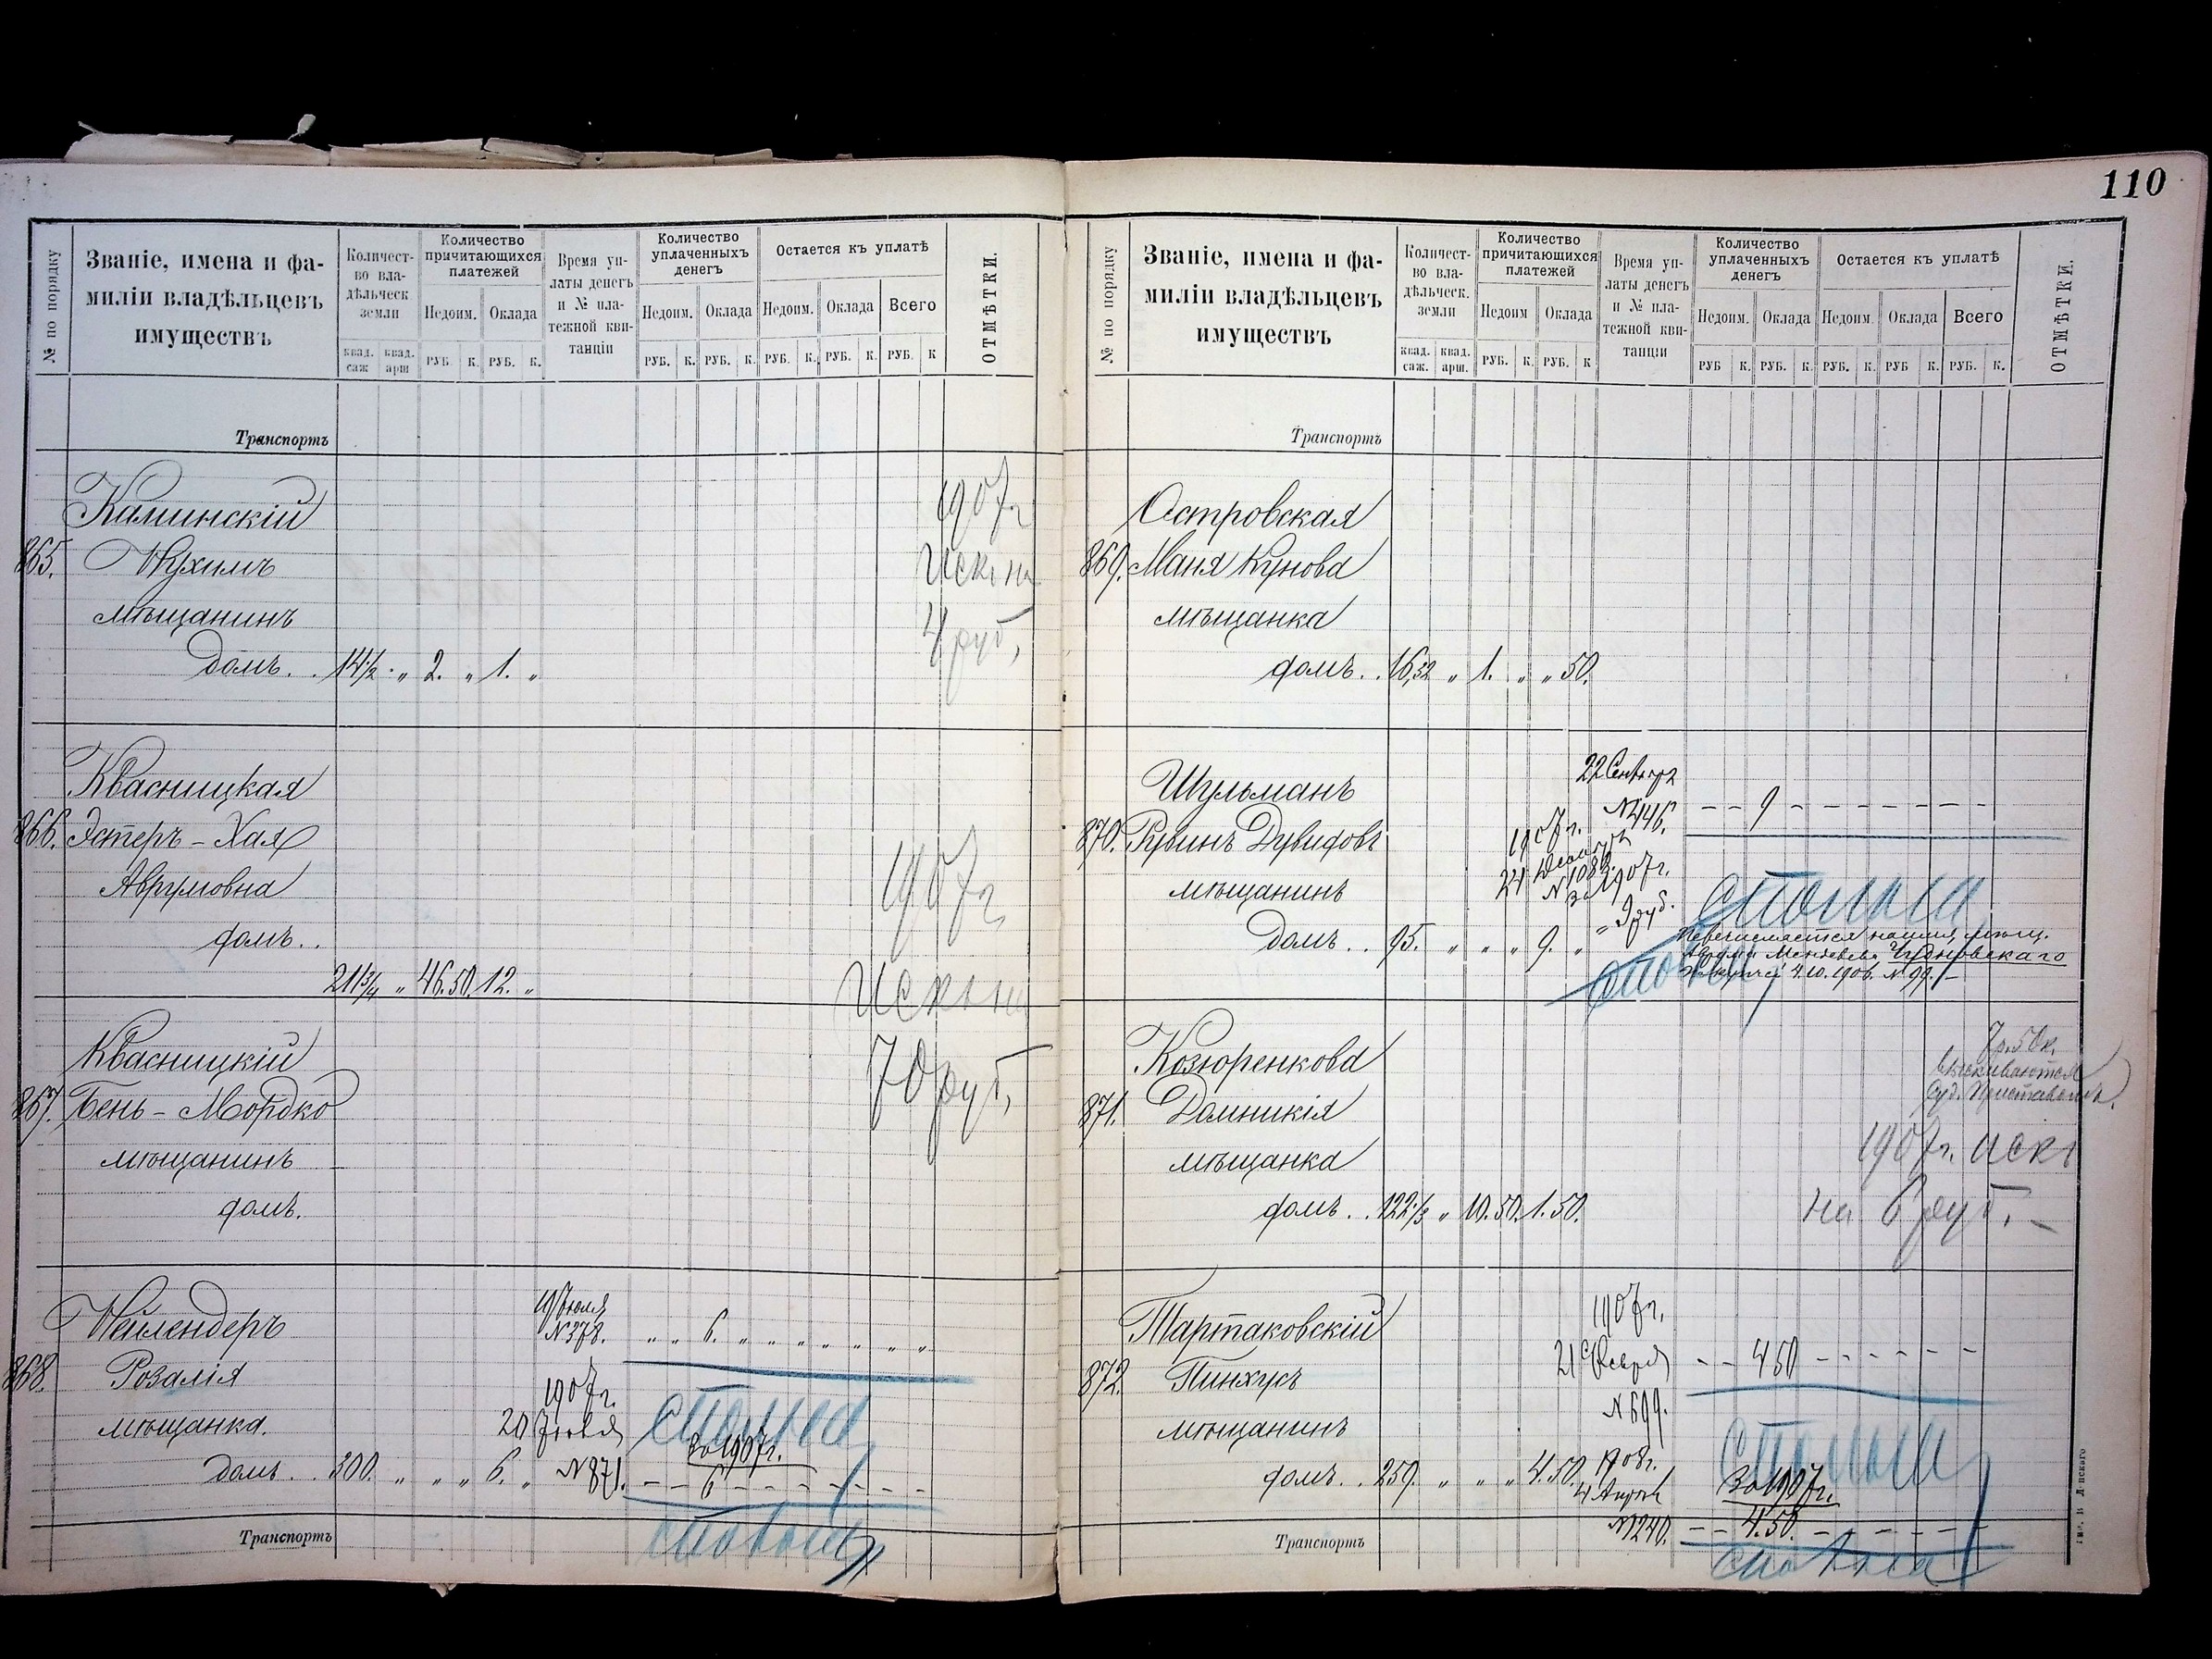 110
№ по порядку
Званіе, имена и фа-
миліи владѣльцевъ
имуществъ
Количест-
во вла-
дѣльческ
земли
квад. саж квад. арш
Количество
причитающихся
платежей
Недоим. Оклада
РУБ. К. РУБ. К.
Время уп-
латы денегъ
и № пла-
тежной кви-
танціи
Количество
уплаченныхъ
денегъ
Недоим. Оклада
РУБ. К. РУБ. К.
Остается къ уплатѣ
Недоим. Оклада Всего
РУБ. К. РУБ. К. РУБ. К
ОТМѢТКИ.
Транспортъ
Каминскій
865. Нухимъ
мѣщанинъ
домъ. . 14½ „ 2. „ 1. „
1907г
Искъ на
4 руб,
Квасницкая
866. Эстеръ-Хая
Аврумовна
домъ. .
21¾ „ 46.50. 12. „
1907г
Искъ на
70 руб,
Квасницкій
867. Бень-Мордко
мѣщанинъ
домъ.
Нейлендеръ
868. Розалія
мѣщанка.
домъ. . 300. „ „ „ 6. „
19 Іюля
№378. „ „ 6. „ „ „ „ „ „ „
1907г.
20 Іюня
№871.
За 1907г.
– – 6 – – – – – –
Транспортъ
№ по порядку
Званіе, имена и фа-
миліи владѣльцевъ
имуществъ
Количест-
во вла-
дѣльческ.
земли
квад. саж. квад. арш.
Количество
причитающихся
платежей
Недоим Оклада
РУБ. К. РУБ. К
Время уп-
латы денегъ
и № пла-
тежной кви-
танціи
Количество
уплаченныхъ
денегъ
Недоим. Оклада
РУБ К. РУБ. К.
Остается къ уплатѣ
Недоим. Оклада Всего
РУБ. К. РУБ К. РУБ. К.
ОТМѢТКИ.
Транспортъ
Островская
869. Маня Кунова
мѣщанка
домъ. . 16,32 „ 1. „ „ 50.
Шульманъ
870. Рувинъ Дувидовъ
мѣщанинъ
домъ. . 95. „ „ „ 9. „
22 Сентяр
№446. – – 9 – – – – – – –
1907г.
24 Декабря
№1082.
за 1907г.
„ 9 руб.
Перечисляется на имя мѣщ.
Чудновскаго
4.10.1906. №99.
Козюренкова
871. Домникія
мѣщанка
домъ. . 122⅓ „ 10.50. 1.50.
7р.50к.
взыскиваются
Суд. Приставомъ.
1907г. Искъ
на 6 руб. –
Тартаковскій
872. Пинхусъ
мѣщанинъ
домъ. . 259. „ „ „ 4.50.
1907г.
21 Февраля – – 4 50 – – – – – –
№699.
1908г.
4 Апрѣля
№1240.
За 1907г.
– – 4.50. – – – – – –
Транспортъ